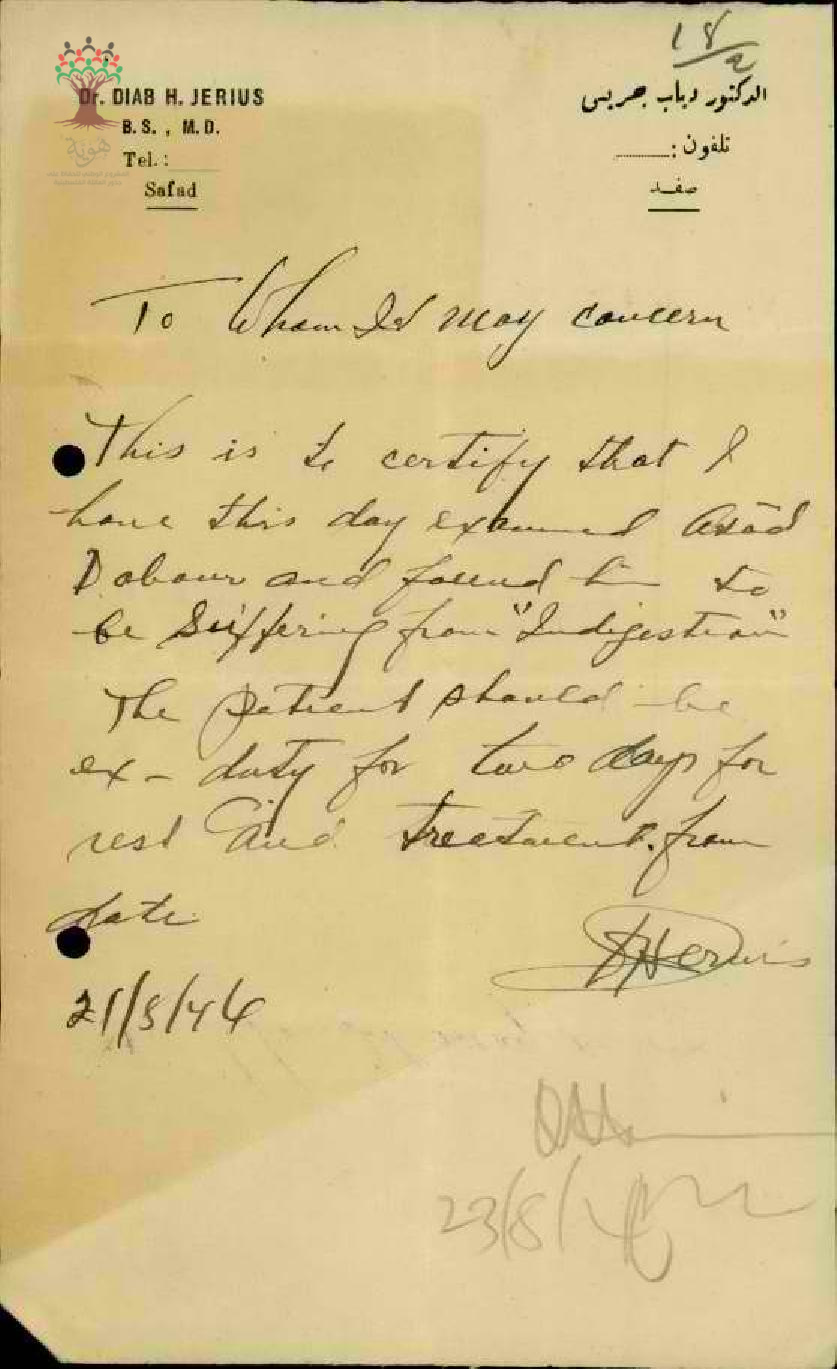 18/2
Dr. DIAB H. JERIUS
B.S., M.D.
Tel.:
Safad
الدكتور دياب جريس
تلفون:
صفد
هوية
To Whom It may concern
This is to certify that I
have this day examined Asād
Dabour and found him to
be Suffering from "Indigestion"
The patient should be
ex-duty for two days for
rest and treatment. from
date
DHJerius
21/8/46
23/8/46